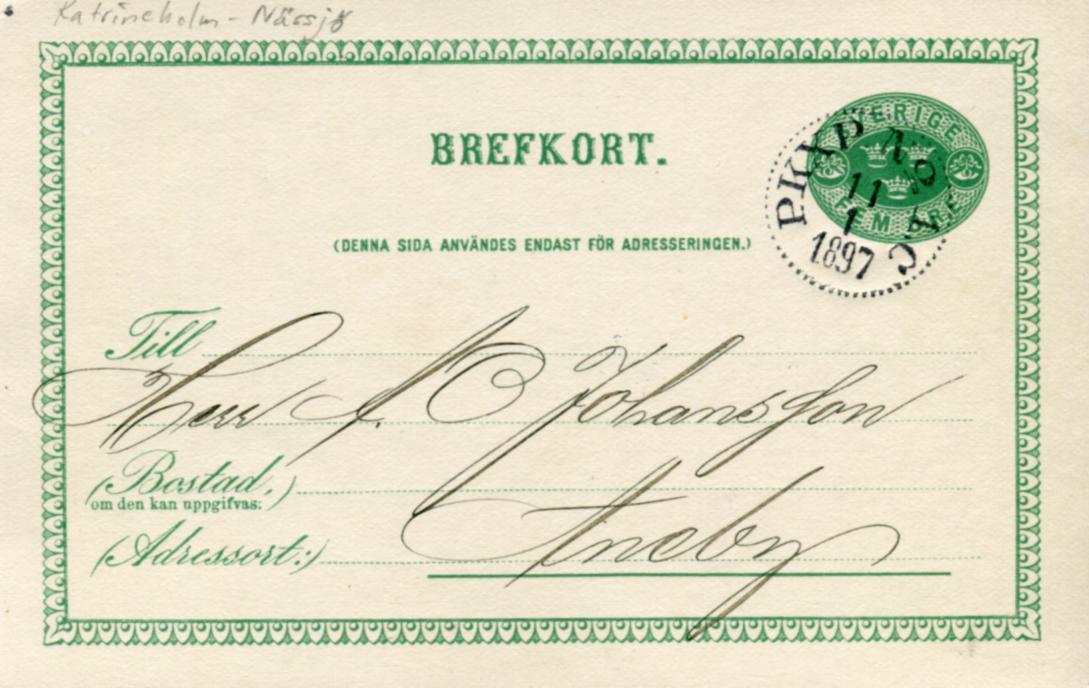 Katrineholm - Nässjö
BREFKORT.
SVERIGE
FEM ÖRE
PKXP No
11
1
1897
(DENNA SIDA ANVÄNDES ENDAST FÖR ADRESSERINGEN.)
Till
Herr A. C Johansson
(Bostad,)
om den kan uppgifvas:
Aneby
(Adressort:)